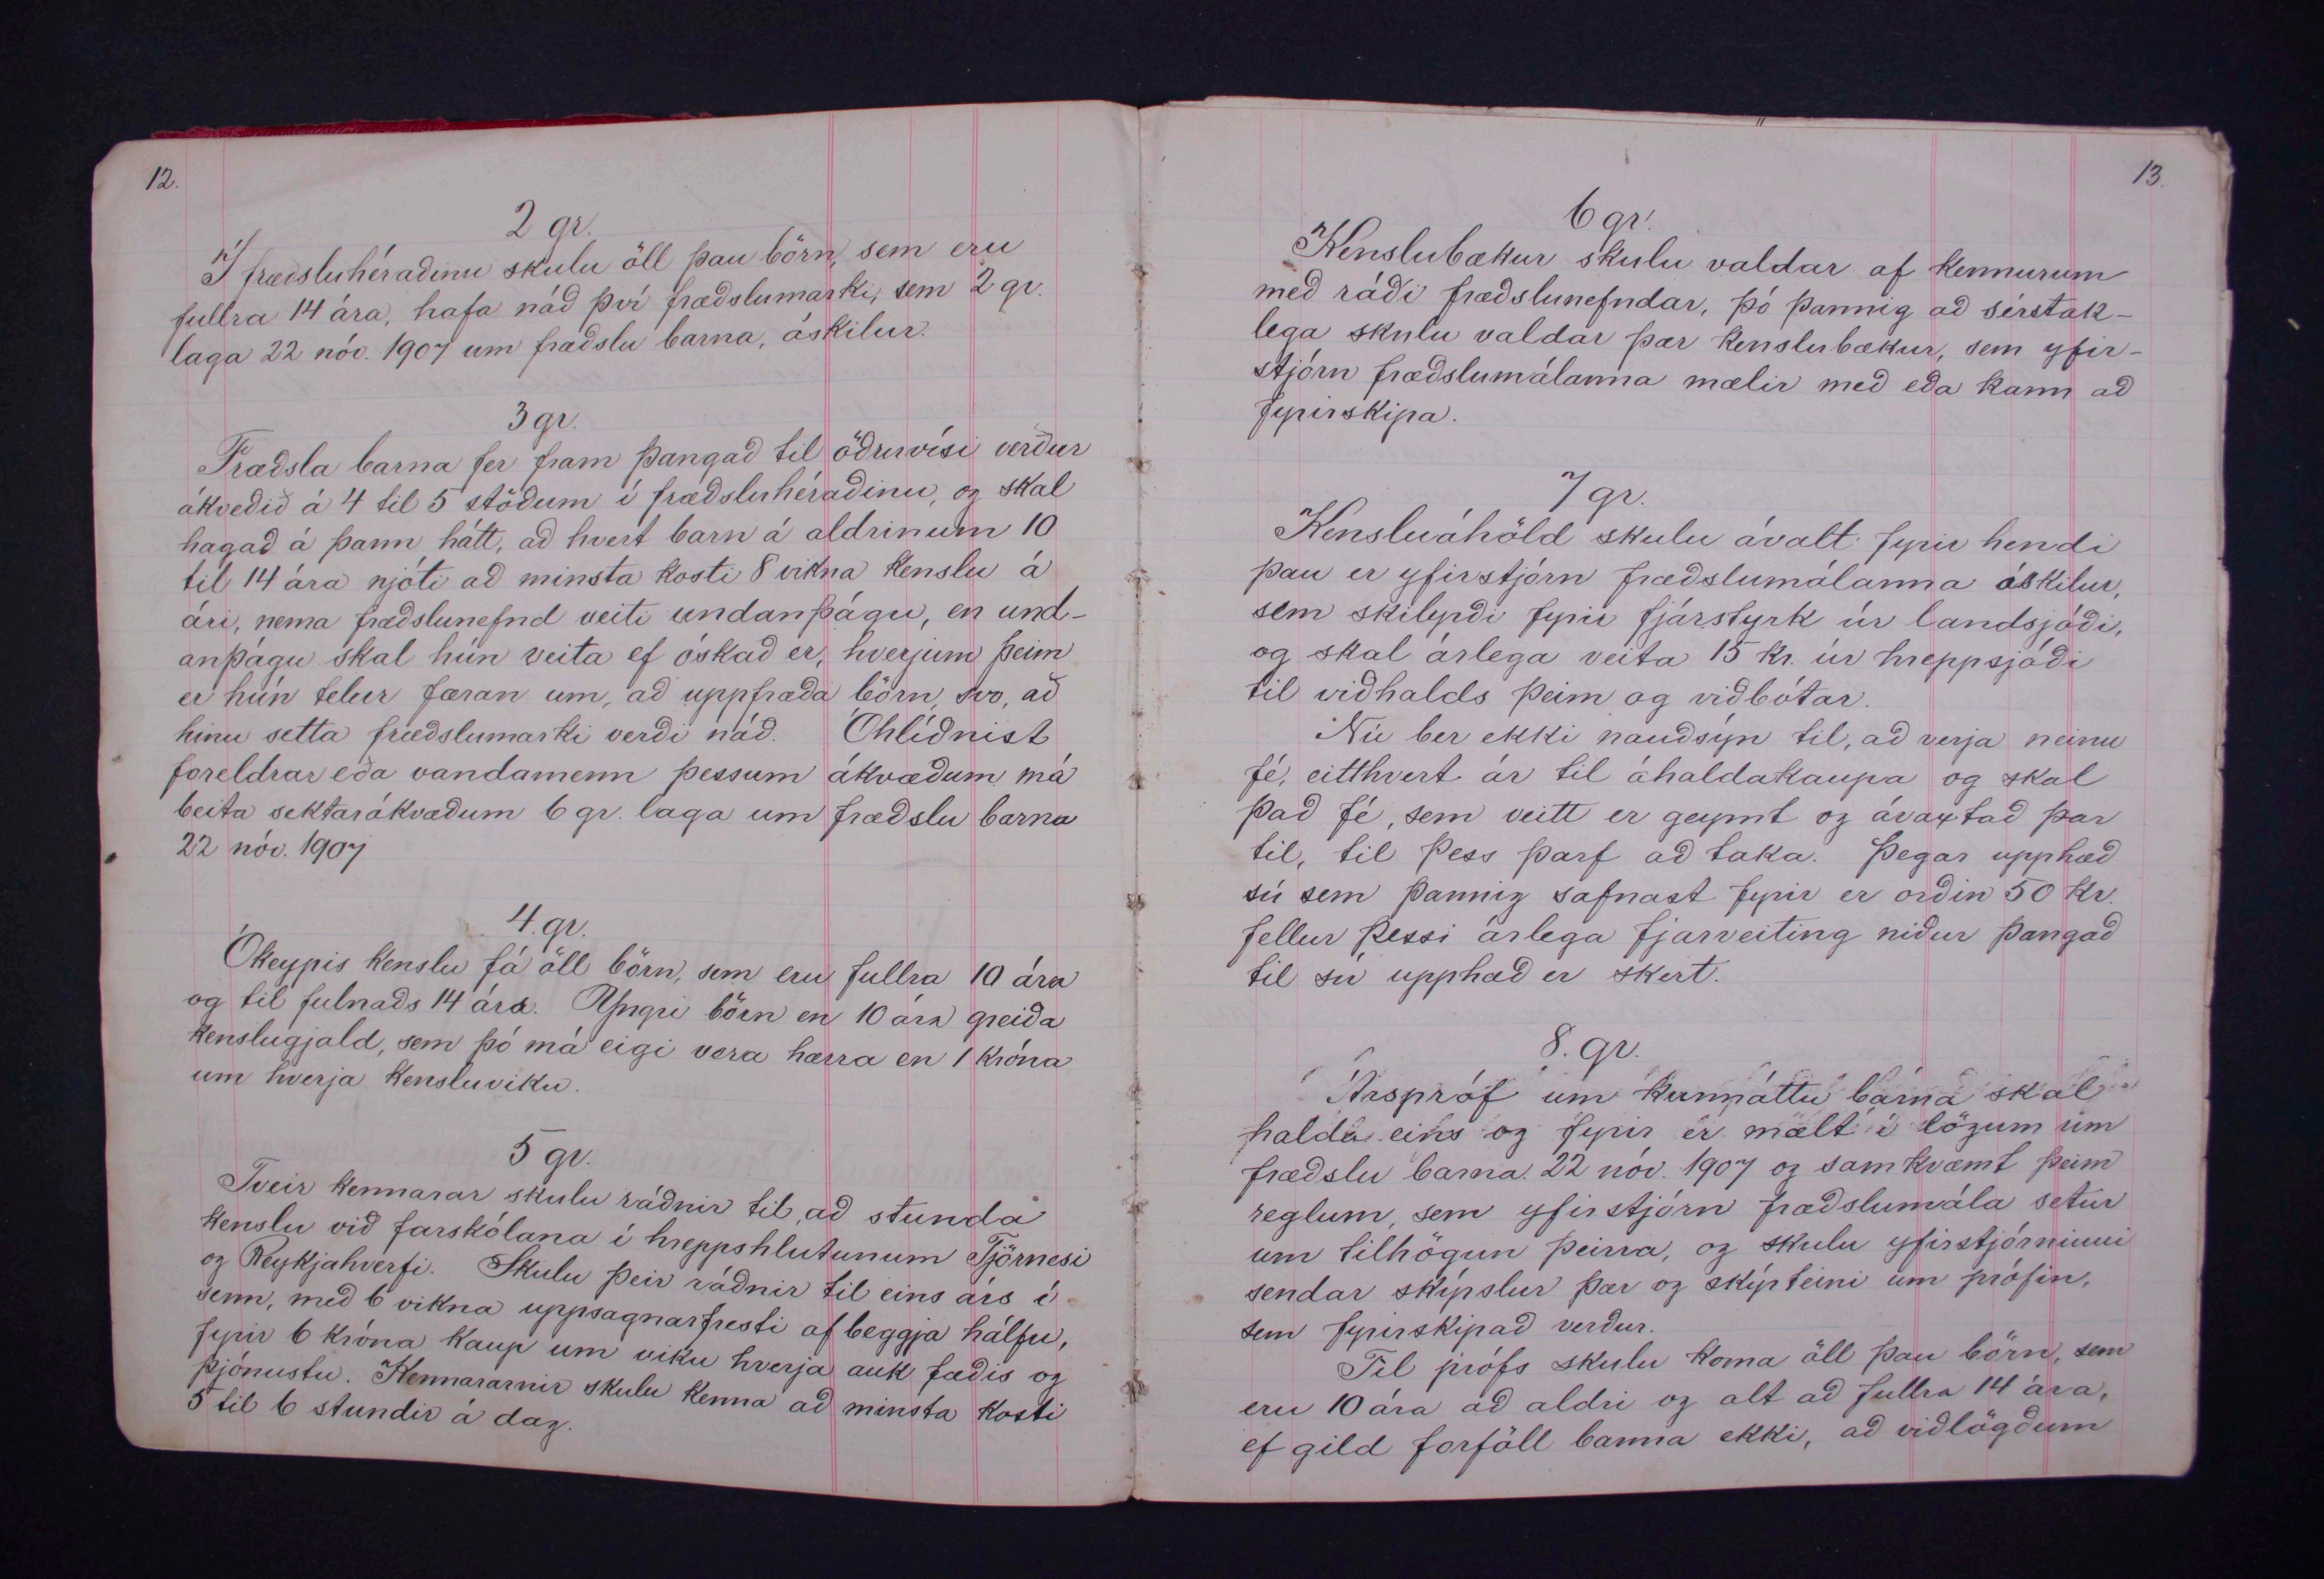 12.
2 gr.
Í fræðsluhéraðinu skulu öll þau börn, sem eru
fullra 14 ára, hafa náð því fræðslumarki, sem 2 gr.
laga 22 nóv. 1907 um fræðslu barna, áskilur.
3 gr.
Fræðsla barna fer fram þangað til öðruvísi verður
ákveðið á 4 til 5 stöðum í fræðsluhéraðinu, og skal
hagað á þann hátt, að hvert barn á aldrinum 10
til 14 ára njóti að minsta kosti 8 vikna kenslu á
ári, nema fræðslunefnd veiti undanþágu, en und-
anþágu skal hún veita ef óskað er, hverjum þeim
er hún telur færan um, að uppfræða börn svo, að
hinu setta fræðslumarki verði náð. Óhlíðnist
foreldrar eða vandamenn þessum ákvæðum má
beita sektarákvæðum 6 gr. laga um fræðslu barna
22 nóv. 1907
4. gr.
Ókeypis kenslu fá öll börn, sem eru fullra 10 ára
og til fulnaðs 14 ára. Yngri börn en 10 ára greiða
kenslugjald, sem þó má eigi vera hærra en 1 króna
um hverja kensluviku.
5 gr.
Tveir kennarar skulu ráðnir til, að stunda
kenslu við farskólana í hreppshlutunum Tjörnesi
og Reykjahverfi. Skulu þeir ráðnir til eins árs í
senn, með 6 vikna uppsagnarfresti af beggja hálfu,
fyrir 6 króna kaup um viku hverja auk fæðis og
þjónustu. Kennararnir skulu kenna að minsta kosti
5 til 6 stundir á dag.
13.
6 gr.
Kenslubækur skulu valdar af kennurum
með ráði fræðslunefndar, þó þannig að sérstak-
lega skulu valdar þær kenslubækur, sem yfir-
stjórn fræðslumálanna mælir með eða kann að
fyrirskipa.
7 gr.
Kensluáhöld skulu ávalt fyrir hendi
þau er yfirstjórn fræðslumálanna áskilur,
sem skilyrði fyrir fjárstyrk úr landsjóði,
og skal árlega veita 15 kr. úr hreppsjóði
til viðhalds þeim og viðbótar.
Nú ber ekki nauðsýn til, að verja neinu
fé, eitthvert ár til áhaldakaupa og skal
það fé, sem veitt er geymt og ávaxtað þar
til, til þess þarf að taka. Þegar upphæð
sú sem þannig safnast fyrir er orðin 50 kr.
fellur þessi árlega fjárveiting niður þangað
til sú upphæð er skert.
8. gr.
Árspróf um kunnáttu barna skal
halda eins og fyrir er mælt í lögum um
fræðslu barna 22 nóv. 1907 og samkvæmt þeim
reglum, sem yfirstjórn fræðslumála setur
um tilhögun þeirra, og skulu yfirstjórninni
sendar skýrslur þær og skýrteini um prófin,
sem fyrirskipað verður.
Til prófs skulu koma öll þau börn, sem
eru 10 ára að aldri og alt að fullra 14 ára,
ef gild forföll banna ekki, að viðlögðum